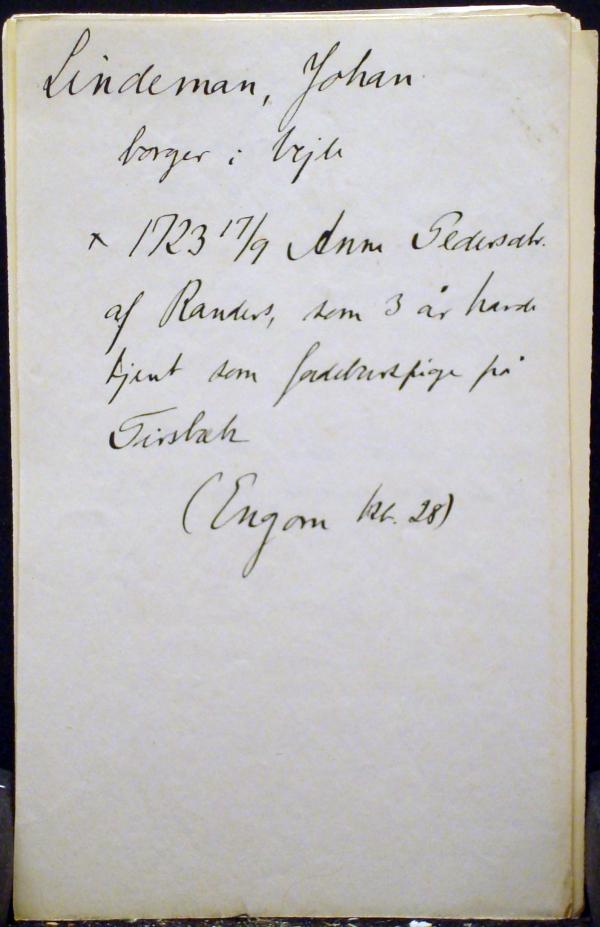 Lindeman, Johan
borger i Vejle
x 1723 17/9 Anne Pedersdtr.
af Randers, som 3 år havde
tjent som fadeburspige på
Tirsbæk
(Engom kb. 28)